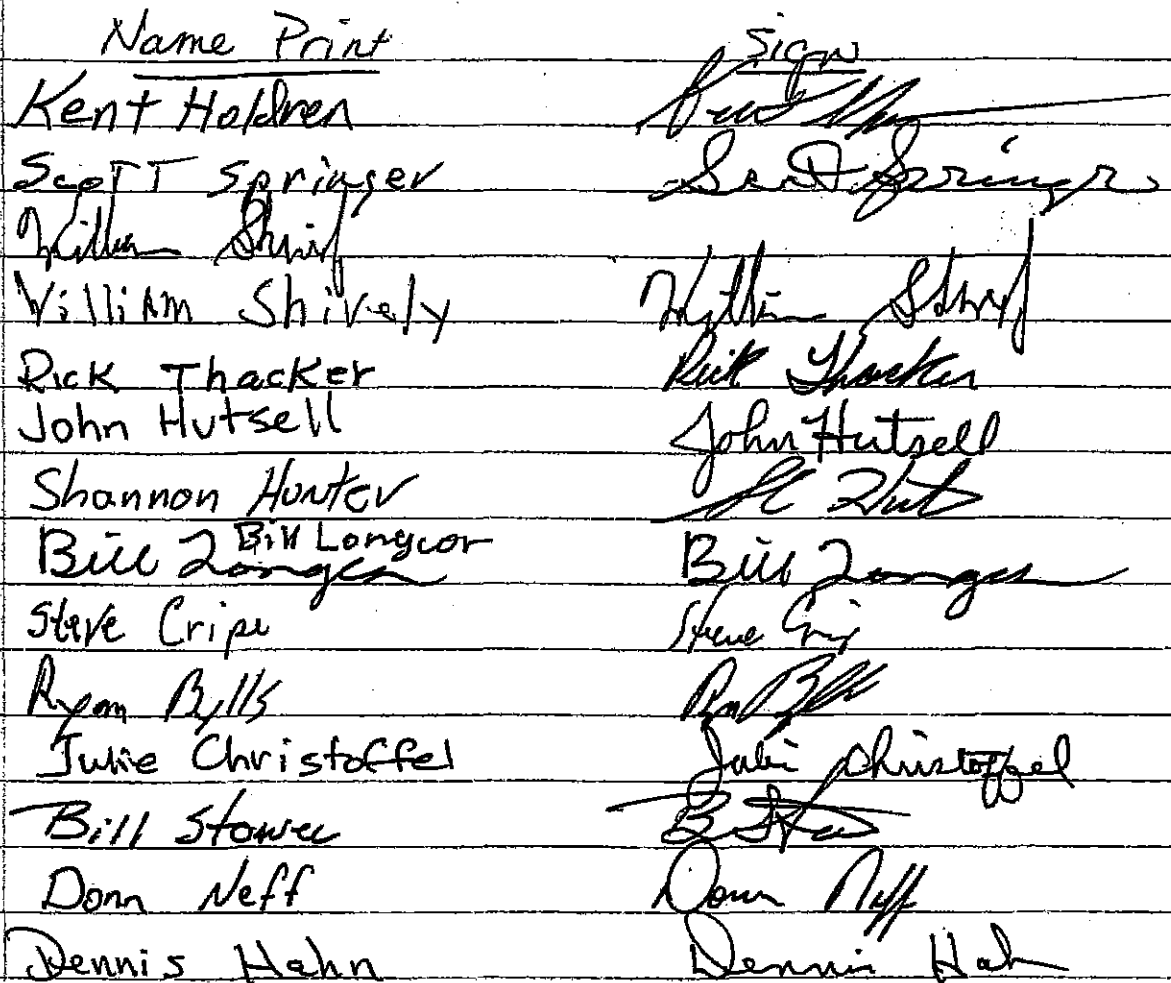 Name Print Sign
Kent Holdren
Scott Springer Scott Springer
William Shively
William Shively William Shively
Rick Thacker Rick Thacker
John Hutsell John Hutsell
Shannon Hunter
Bill Longcor
Bill Longcor Bill Longcor
Steve Cripe Steve Cripe
Ryan Bylls
Julie Christoffel Julie Christoffel
Bill Stower
Donn Neff Donn Neff
Dennis Hahn Dennis Hahn